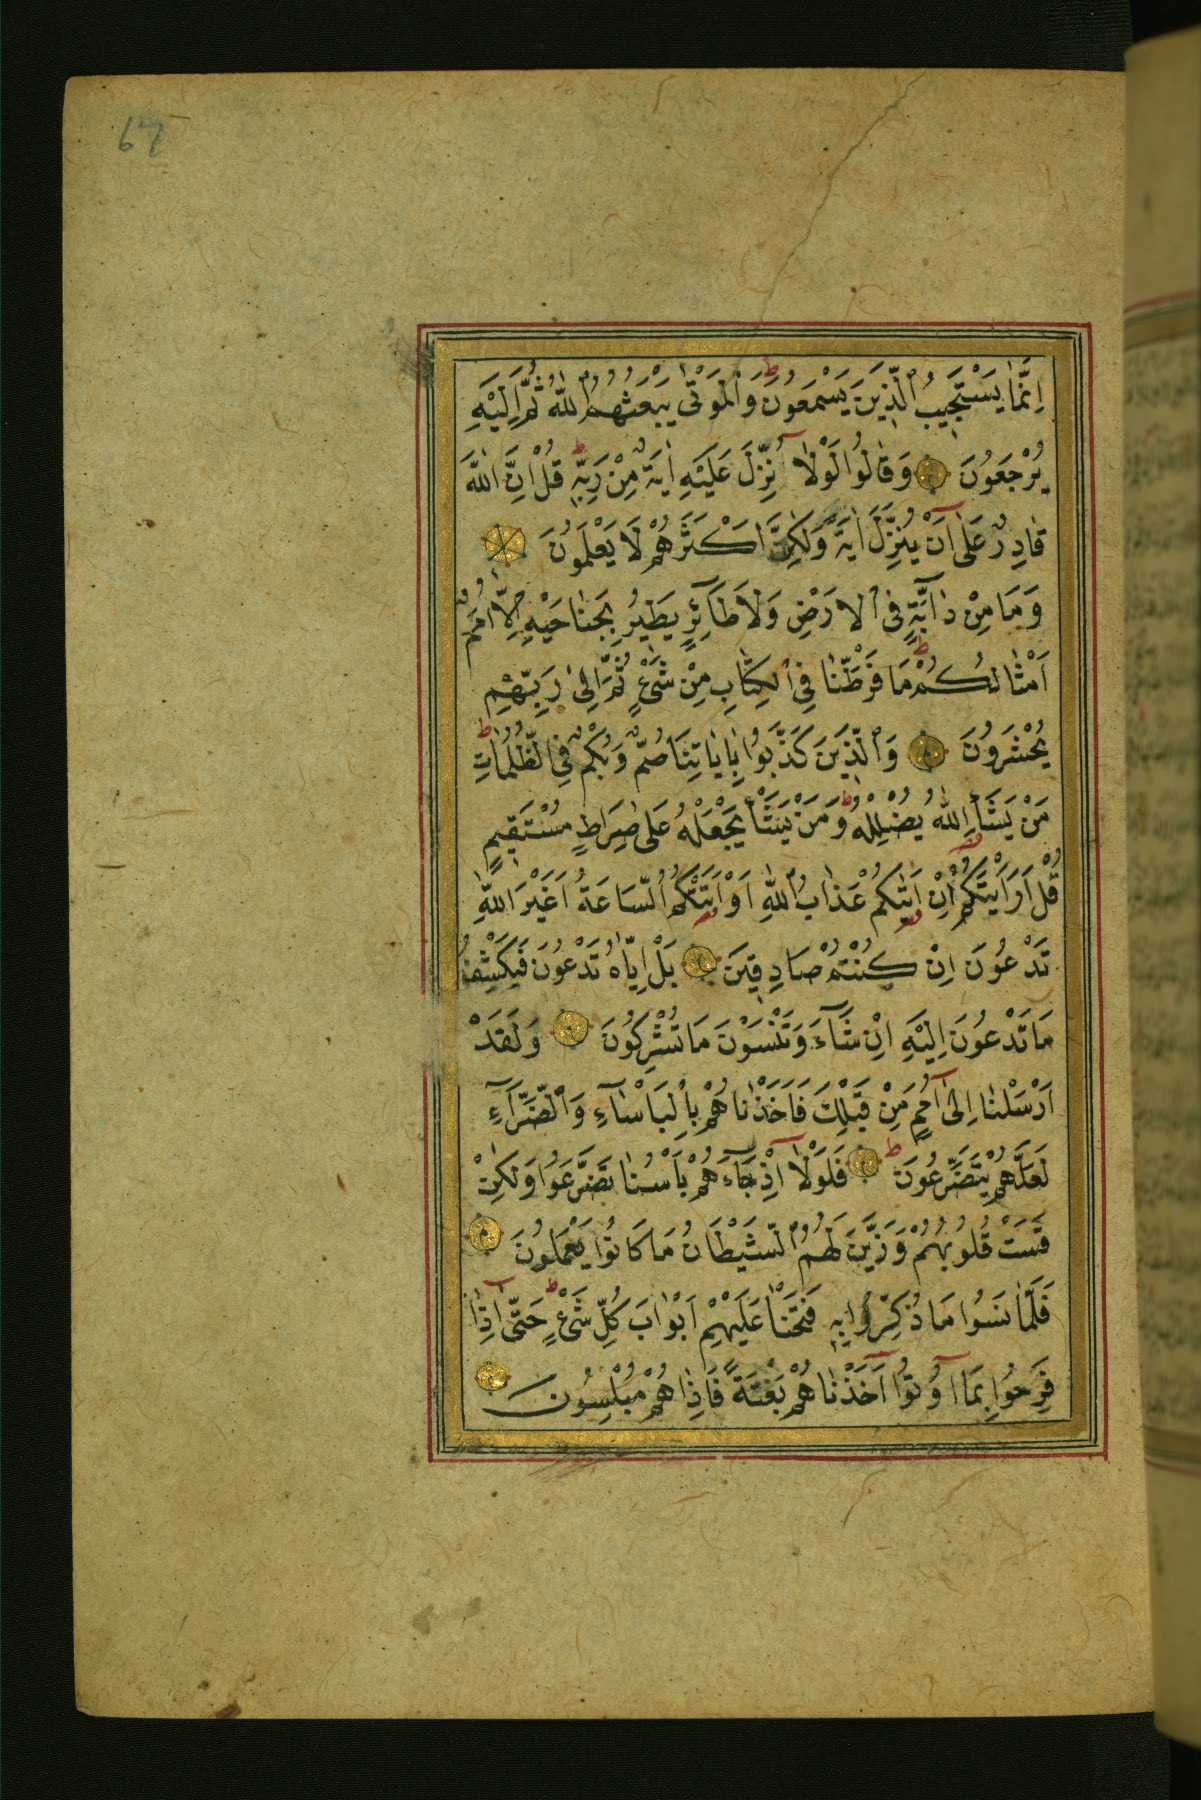 67
اِنَّمَا يَسْتَجِيبُ الَّذِينَ يَسْمَعُونَ ط وَالْمَوْتٰى يَبْعَثُهُمُ اللّٰهُ ثُمَّ اِلَيْهِ
يُرْجَعُونَ وَقَالُوا لَوْلَا نُزِّلَ عَلَيْهِ اٰيَةٌ مِنْ رَبِّهٖ ط قُلْ اِنَّ اللّٰهَ
قَادِرٌ عَلٰٓى اَنْ يُنَزِّلَ اٰيَةً وَلٰكِنَّ اَكْثَرَهُمْ لَا يَعْلَمُونَ
وَمَا مِنْ دَٓابَّةٍ فِى الْاَرْضِ وَلَا طَٓائِرٍ يَطِيرُ بِجَنَاحَيْهِ اِلَّٓا اُمَمٌ
اَمْثَالُكُمْ ط مَا فَرَّطْنَا فِى الْكِتَابِ مِنْ شَىْءٍ ثُمَّ اِلٰى رَبِّهِمْ
يُحْشَرُونَ وَالَّذِينَ كَذَّبُوا بِاٰيَاتِنَا صُمٌّ وَبُكْمٌ فِى الظُّلُمَاتِ ط
مَنْ يَشَاِ اللّٰهُ يُضْلِلْهُ ط وَمَنْ يَشَأْ يَجْعَلْهُ عَلٰى صِرَاطٍ مُسْتَقِيمٍ
قُلْ اَرَاَيْتَكُمْ اِنْ اَتٰيكُمْ عَذَابُ اللّٰهِ اَوْ اَتَتْكُمُ السَّاعَةُ اَغَيْرَ اللّٰهِ
تَدْعُونَ اِنْ كُنْتُمْ صَادِقِينَ بَلْ اِيَّاهُ تَدْعُونَ فَيَكْشِفُ
مَا تَدْعُونَ اِلَيْهِ اِنْ شَٓاءَ وَتَنْسَوْنَ مَا تُشْرِكُونَ وَلَقَدْ
اَرْسَلْنَا اِلٰٓى اُمَمٍ مِنْ قَبْلِكَ فَاَخَذْنَاهُمْ بِالْبَاْسَٓاءِ وَالضَّرَّٓاءِ
لَعَلَّهُمْ يَتَضَرَّعُونَ ط فَلَوْلَٓا اِذْ جَٓاءَهُمْ بَاْسُنَا تَضَرَّعُوا وَلٰكِنْ
قَسَتْ قُلُوبُهُمْ وَزَيَّنَ لَهُمُ الشَّيْطَانُ مَا كَانُوا يَعْمَلُونَ
فَلَمَّا نَسُوا مَا ذُكِّرُوا بِهٖ فَتَحْنَا عَلَيْهِمْ اَبْوَابَ كُلِّ شَىْءٍ ط حَتّٰٓى اِذَا
فَرِحُوا بِمَٓا اُوتُٓوا اَخَذْنَاهُمْ بَغْتَةً فَاِذَا هُمْ مُبْلِسُونَ